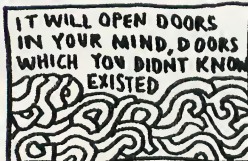 IT WILL OPEN DOORS
IN YOUR MIND, DOORS
WHICH YOU DIDNT KNOW
EXISTED